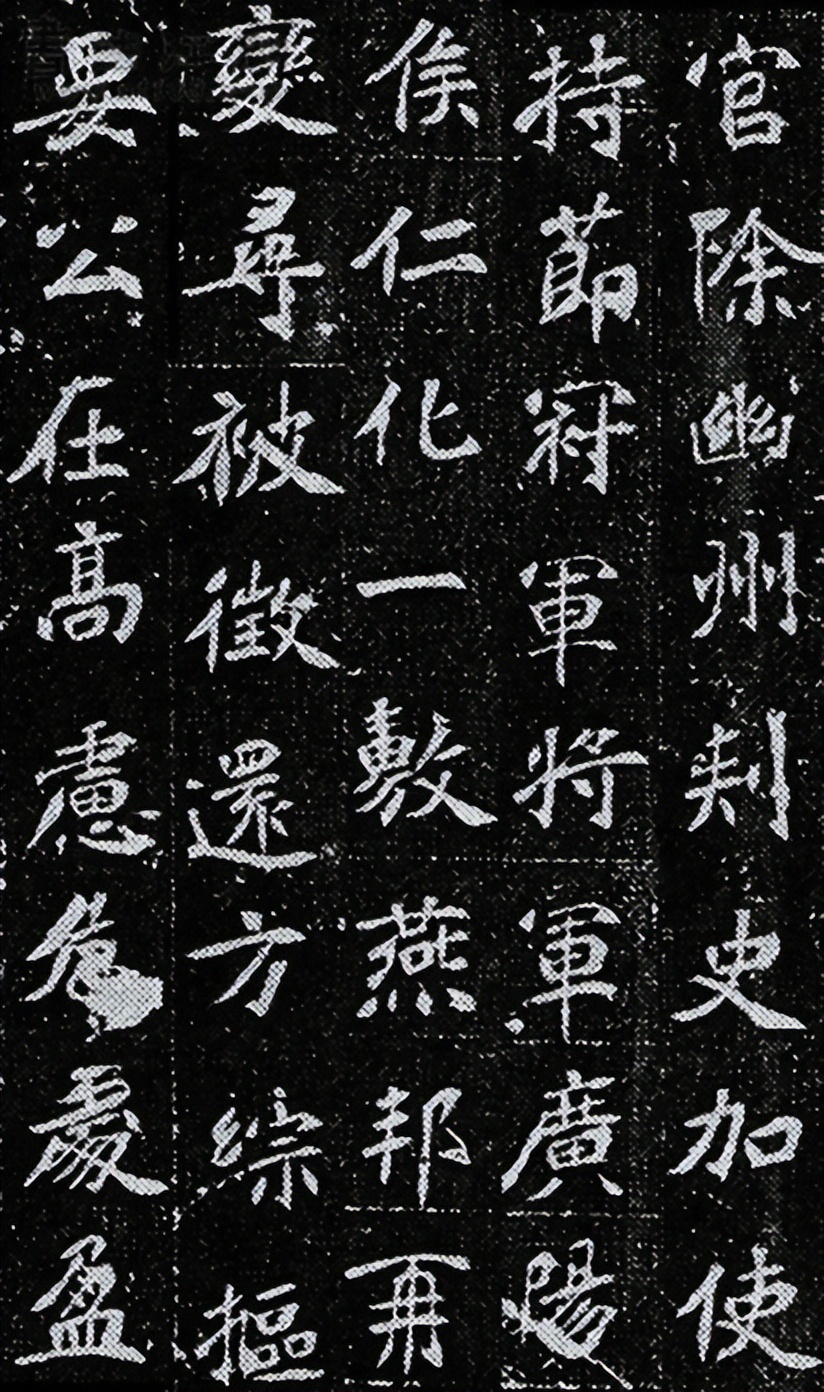 官除幽州刺史加使
持節冠軍將軍廣陽
侯仁化一敷燕邦再
變尋被徵還方綜樞
要公在高慮危處盈